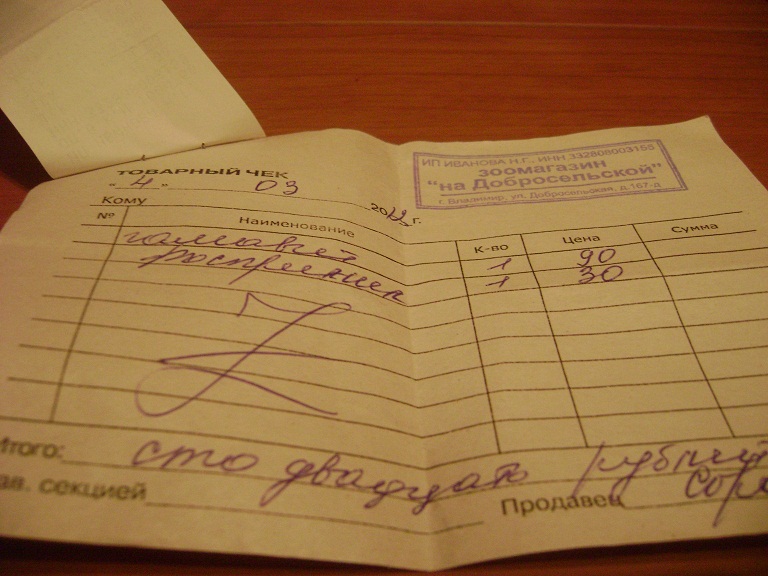 ИП ИВАНОВА Н.Г., ИНН 332808003155
зоомагазин
"на Добросельской"
г. Владимир, ул. Добросельская, д.167-д
ТОВАРНЫЙ ЧЕК
" 4 " 03 20 г.
Кому
№ Наименование К-во Цена Сумма
1 90
распрыскив 1 30
Итого: сто двадцать рублей
ав. секцией Продавец